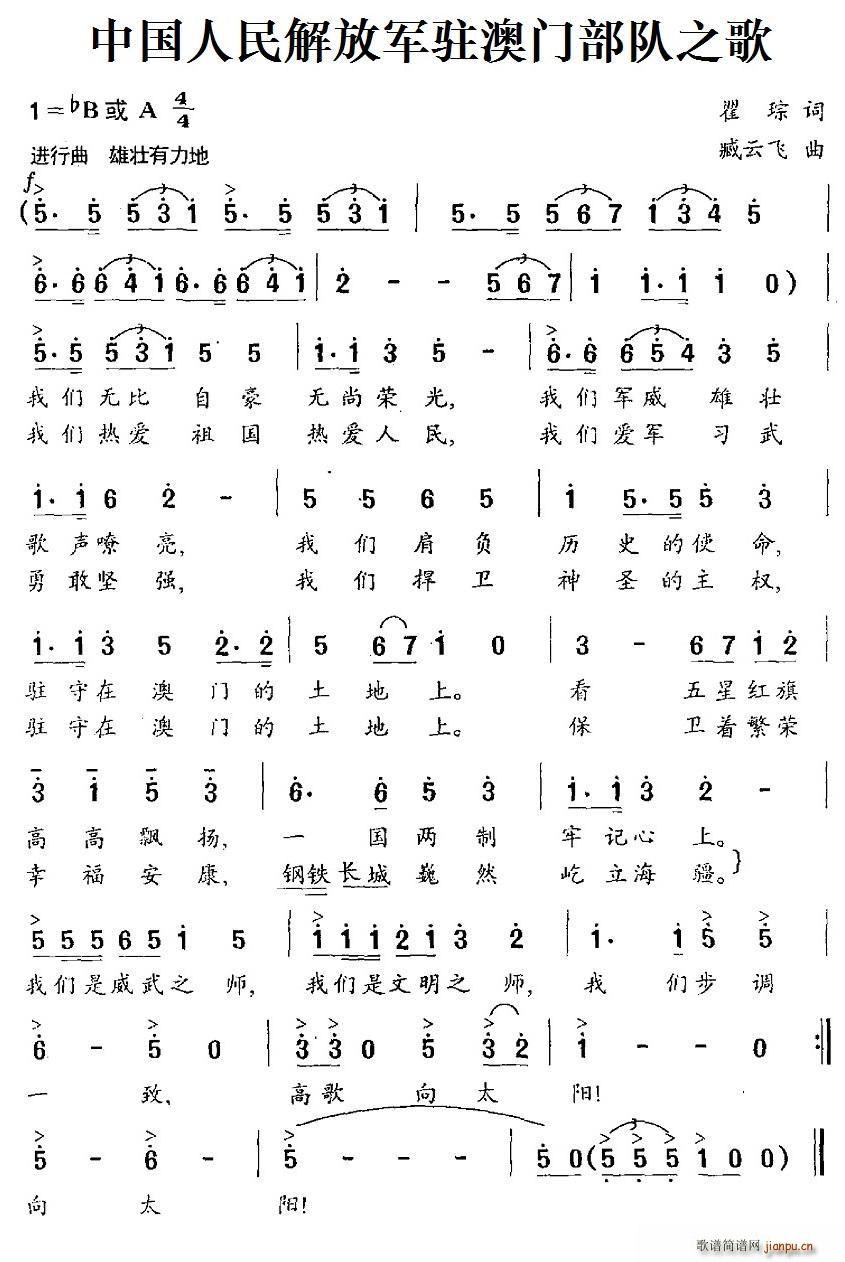 中国人民解放军驻澳门部队之歌
1=♭B或 A 4/4
瞿 琮 词
进行曲 雄壮有力地
臧云飞 曲
f
(5. 5 5 3 1 5. 5 5 3 1 | 5. 5 5 6 7 1 3 4 5 |
6. 6 6 4 1 6. 6 6 4 1 | 2 - - 5 6 7 | 1 1. 1 1 0) |
5. 5 5 3 1 5 5 | 1. 1 3 5 - | 6. 6 6 5 4 3 5 |
我们无比 自豪 无尚荣光, 我们军威 雄壮
我们热爱 祖国 热爱人民, 我们爱军 习武
1. 1 6 2 - | 5 5 6 5 | 1 5. 5 5 3 |
歌声嘹亮, 我们肩负 历史的使命,
勇敢坚强, 我们捍卫 神圣的主权,
1. 1 3 5 2. 2 | 5 6 7 1 0 | 3 - 6 7 1 2 |
驻守在澳门的土地上。 看 五星红旗
驻守在澳门的土地上。 保 卫着繁荣
3 1 5 3 | 6. 6 5 3 | 1. 1 3 2 - |
高高飘扬, 一国两制 牢记心上。
幸福安康, 钢铁长城巍然 屹立海疆。}
5 5 5 6 5 1 5 | 1 1 1 2 1 3 2 | 1. 1 5 5 |
我们是威武之师, 我们是文明之师, 我们步调
6 - 5 0 | 3 3 0 5 3 2 | 1 - - 0 :|
一致, 高歌 向太 阳!
5 - 6 - | 5 - - - | 5 0 (5 5 5 1 0 0) ||
向 太 阳!
歌谱简谱网 jianpu.cn